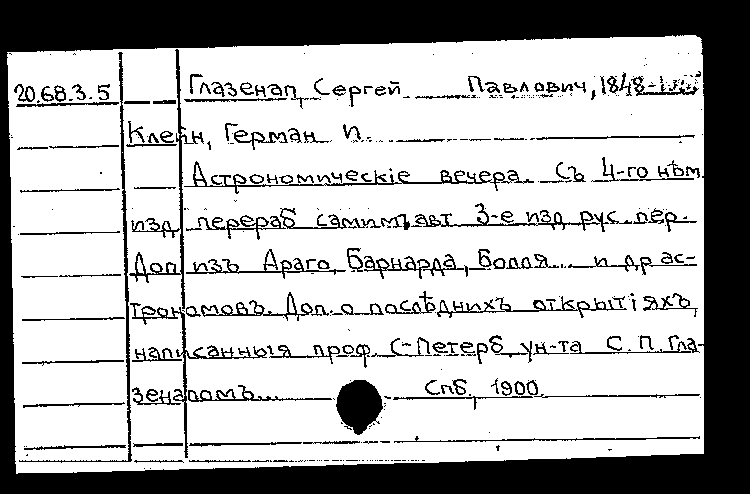 20.68.3.5 Глазенап, Сергей Павлович, 1848-
Клейн, Герман И.
Астрономическіе вечера. Съ 4-го нѣм.
изд. перераб. самимъ авт. 3-е изд. рус. пер.
Доп. изъ Араго, Барнарда, Болля... и др. ас-
трономовъ. Доп. о послѣднихъ открытіяхъ,
написанныя проф. С-Петерб. ун-та С.П. Гла-
зенапомъ... Спб., 1900.